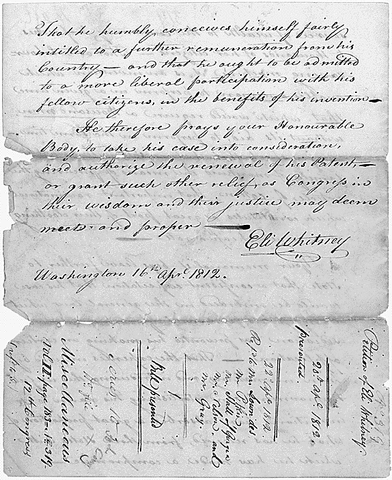 That he humbly conceives himself fairly
intitled to a further remuneration from his
Country — and that he ought to be admitted
to a more liberal participation with his
fellow citizens, in the benefits of his invention —
He therefore prays your Honourable
Body, to take his case into consideration,
and authorize the renewal of his Patent, —
or grant such other relief, as Congress in
their wisdom and their justice may deem
meet and proper —
Eli Whitney
Washington 16th Apr. 1812.
Petition of Eli Whitney.
22d Apl. 1812
presented
22 Apl. 1812
Mr. Pitkin
Mr. Gray
Bill reported
Miscellaneous
12th Congress